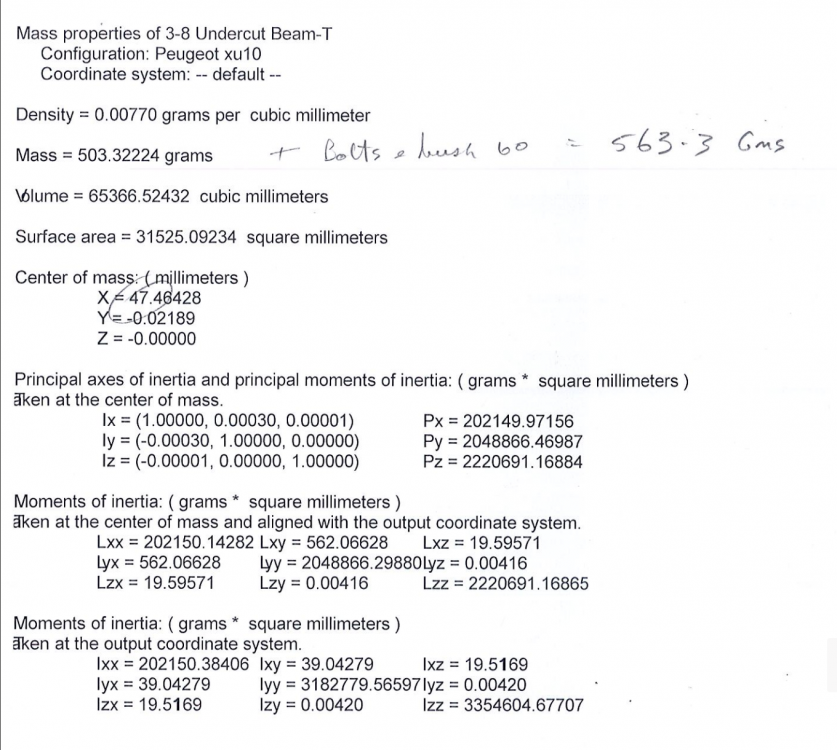 Mass properties of 3-8 Undercut Beam-T
Configuration: Peugeot xu10
Coordinate system: -- default --
Density = 0.00770 grams per cubic millimeter
Mass = 503.32224 grams + Bolts & bush 60 = 563.3 Gms
Volume = 65366.52432 cubic millimeters
Surface area = 31525.09234 square millimeters
Center of mass: ( millimeters )
X = 47.46428
Y = -0.02189
Z = -0.00000
Principal axes of inertia and principal moments of inertia: ( grams * square millimeters )
Taken at the center of mass.
Ix = (1.00000, 0.00030, 0.00001) Px = 202149.97156
Iy = (-0.00030, 1.00000, 0.00000) Py = 2048866.46987
Iz = (-0.00001, 0.00000, 1.00000) Pz = 2220691.16884
Moments of inertia: ( grams * square millimeters )
Taken at the center of mass and aligned with the output coordinate system.
Lxx = 202150.14282 Lxy = 562.06628 Lxz = 19.59571
Lyx = 562.06628 Lyy = 2048866.29880 Lyz = 0.00416
Lzx = 19.59571 Lzy = 0.00416 Lzz = 2220691.16865
Moments of inertia: ( grams * square millimeters )
Taken at the output coordinate system.
Ixx = 202150.38406 Ixy = 39.04279 Ixz = 19.5169
Iyx = 39.04279 Iyy = 3182779.56597 Iyz = 0.00420
Izx = 19.5169 Izy = 0.00420 Izz = 3354604.67707